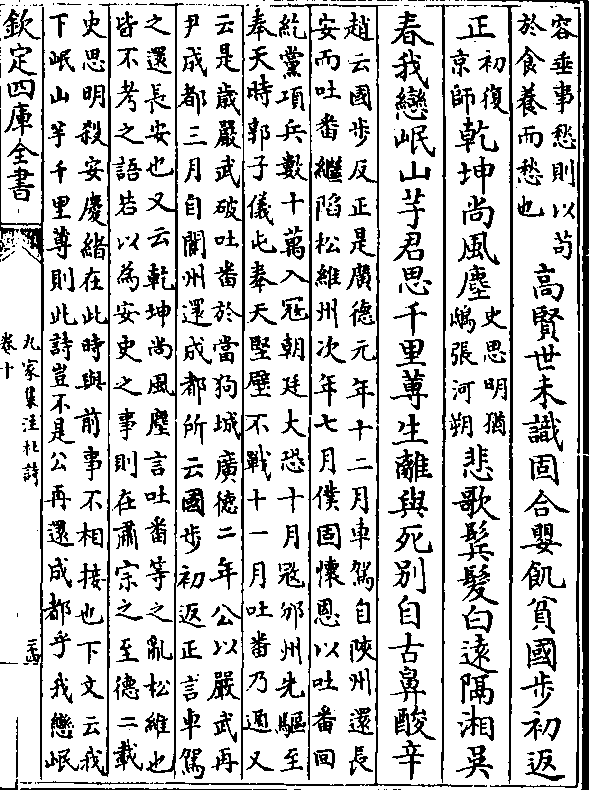 容垂事愁則以苟
於食養而愁也
高賢世未識固合嬰飢貧國步初返
正
初復
京師
乾坤尚風塵
史思明猶
鴟張河朔
悲歌鬂髮白遠隔湘吳
春我戀岷山芋君思千里蓴生離與死別自古鼻酸辛
趙云國步反正是廣德元年十二月車駕自陜州還長
安而吐蕃繼陷松維州次年七月僕固懷恩以吐蕃回
紇黨項兵數十萬入冦朝廷大恐十月冦邠州先驅至
奉天時郭子儀屯奉天堅壁不戰十一月吐蕃乃遁又
云是歲嚴武破吐蕃於當狗城廣德二年公以嚴武再
尹成都三月自閬州還成都所云國步初返正言車駕
之還長安也又云乾坤尚風塵言吐蕃等之亂松維也
皆不考之語若以為安史之事則在肅宗之至德二載
史思明殺安慶緒在此時與前事不相接也下文云我
下岷山芋千里蓴則此詩豈不是公再還成都乎我戀岷
欽定四庫全書
九家集注杜詩
卷十